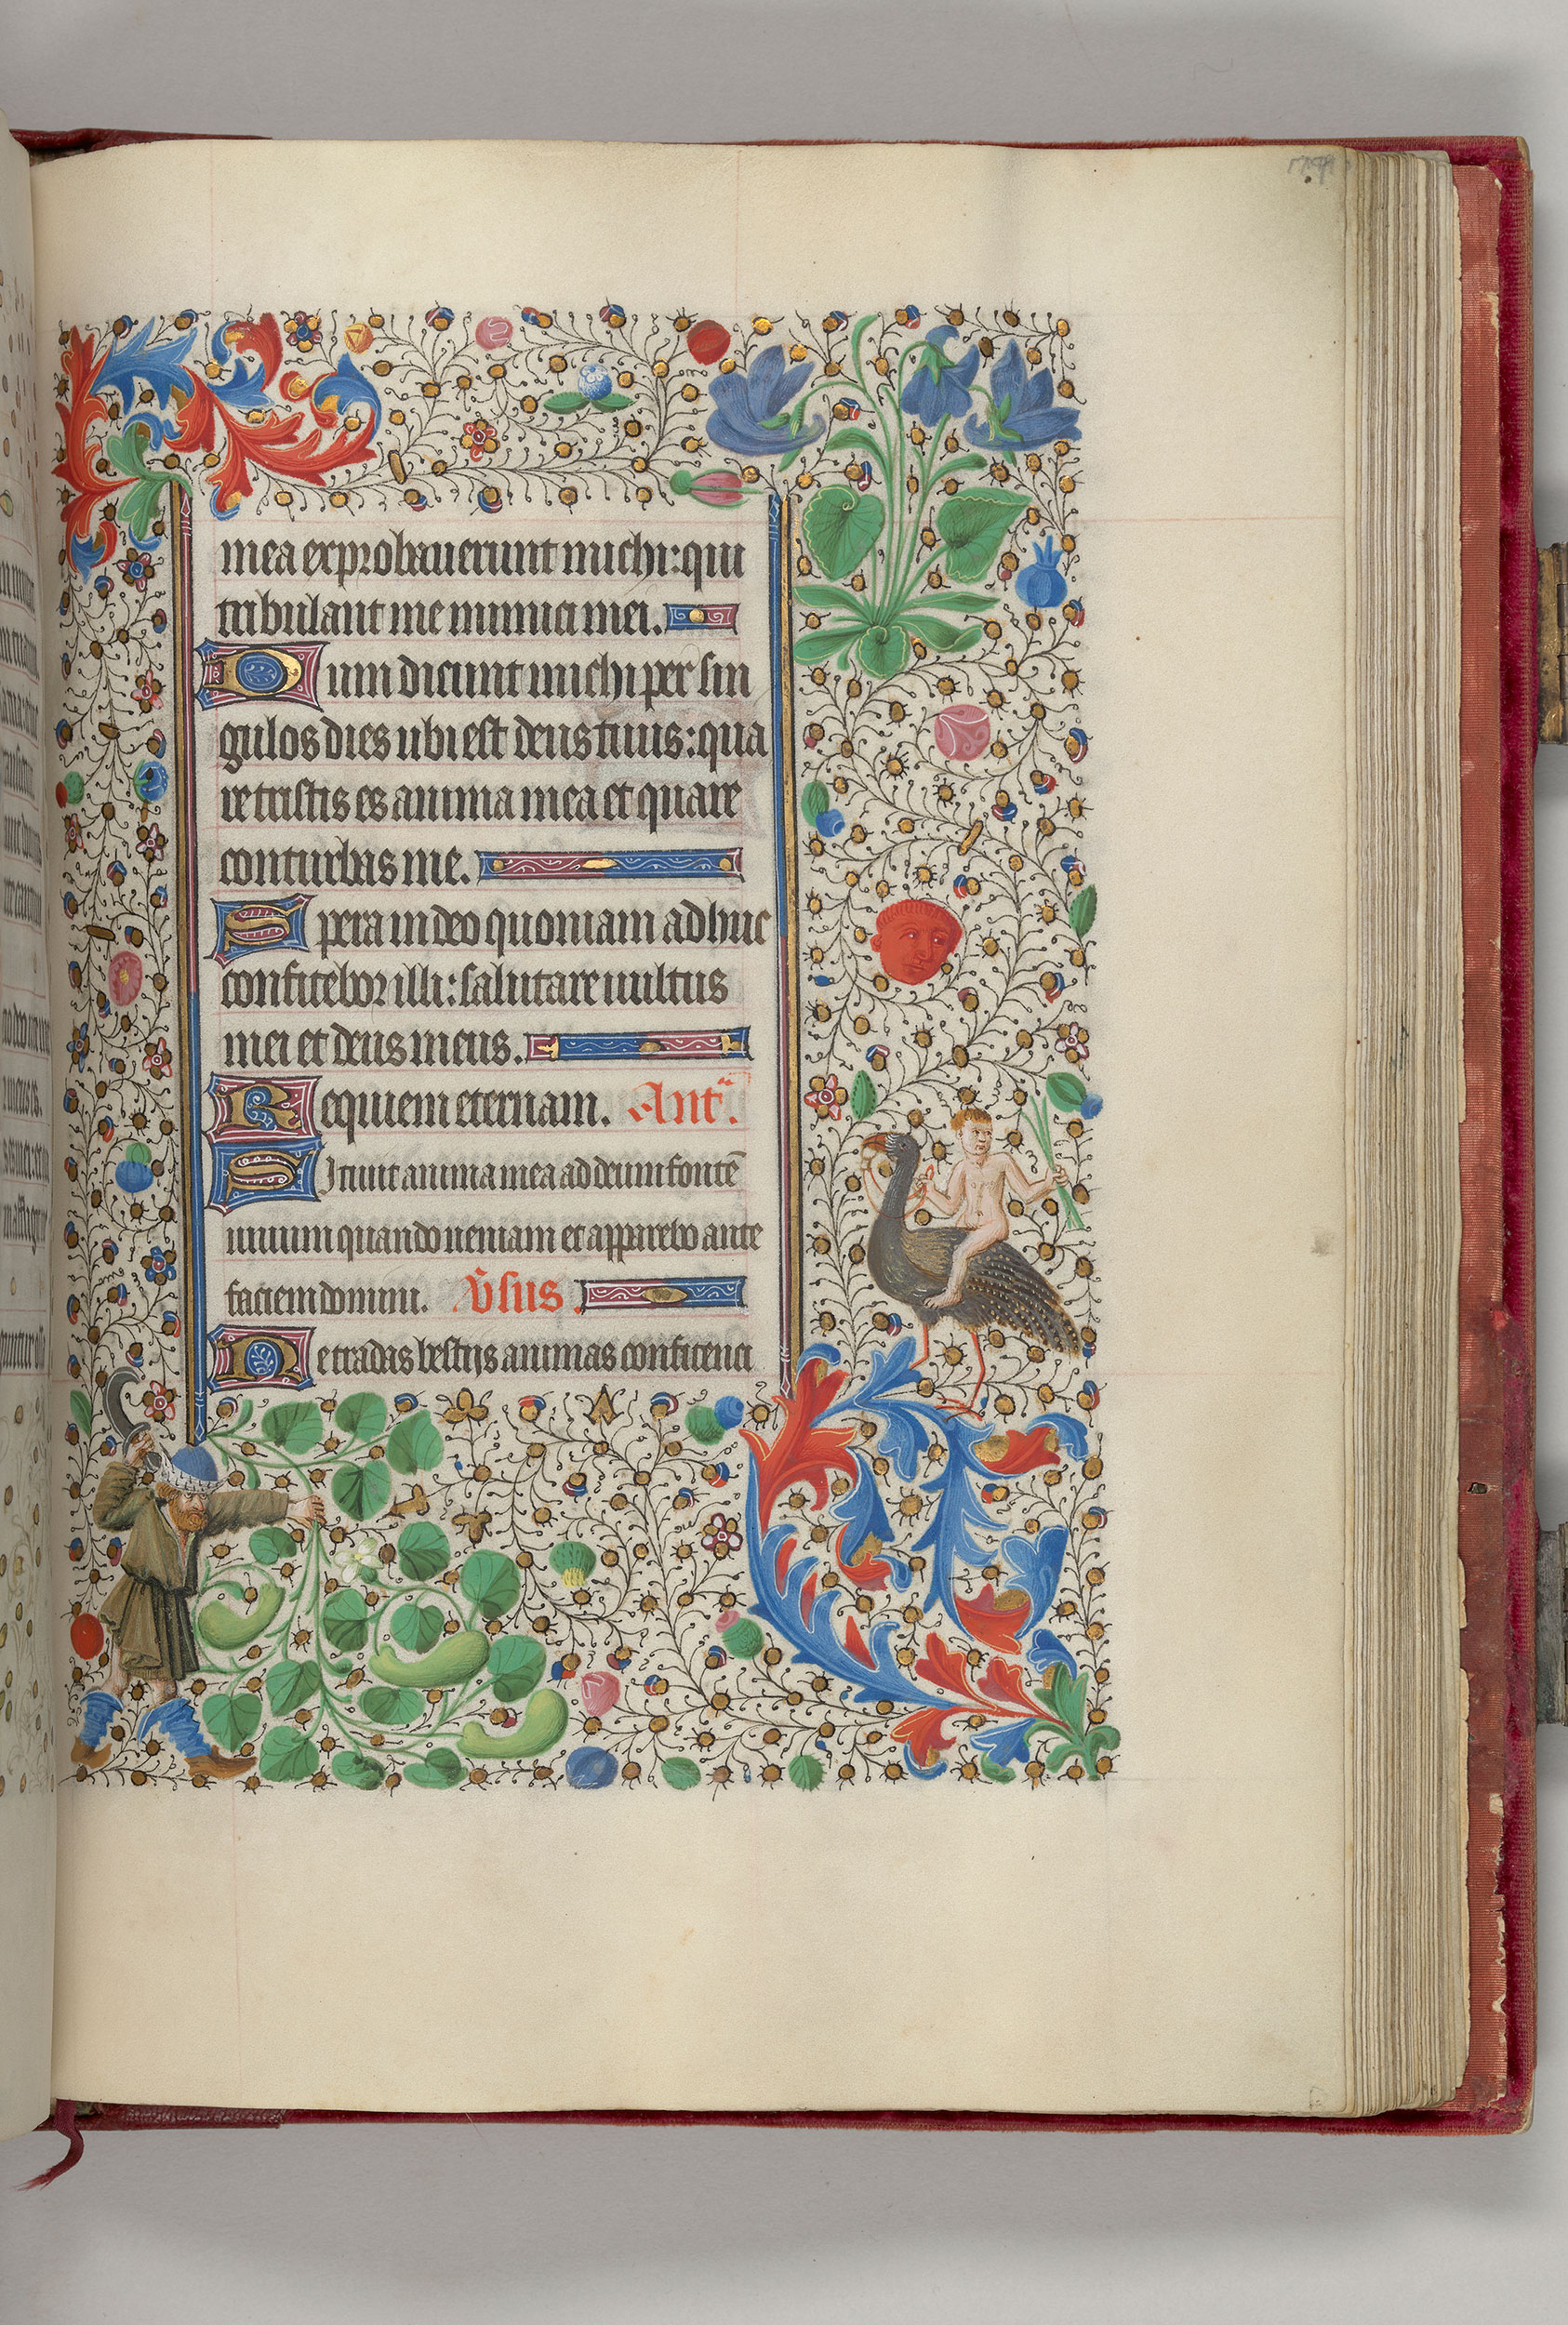 mea exprobauerunt michi: qui
tribulant me inimici mei.
Dum dicunt michi per sin
gulos dies ubi est deus tuus: qua
re tristis es anima mea et quare
conturbas me.
Spera in deo quoniam adhuc
confitebor illi: salutare uultus
mei et deus meus.
Requiem eternam. Ant̃.
Sitiuit anima mea ad deum fontē
uiuum quando ueniam et apparebo ante
faciem domini. v̄sus.
Ne tradas bestijs animas confitenci